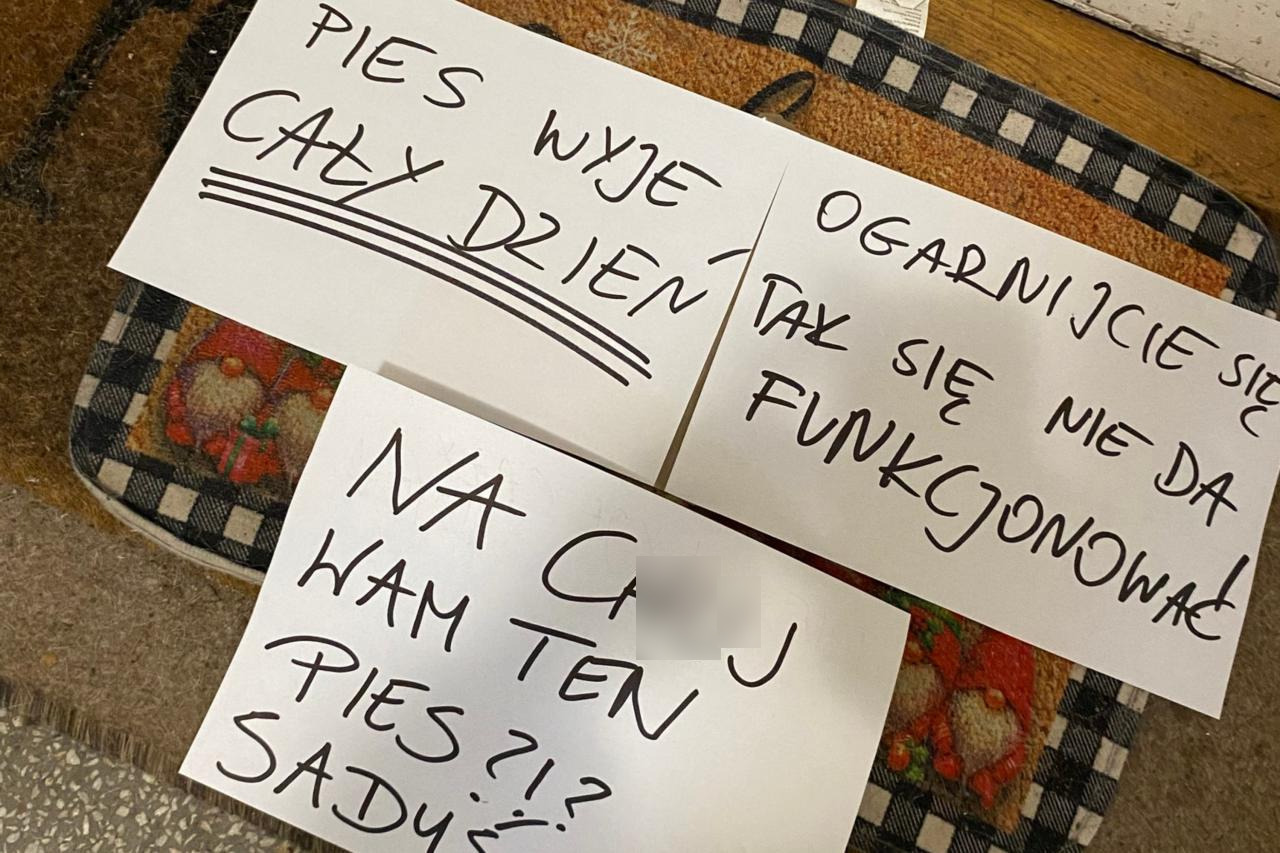 PIES WYJE
CAŁY DZIEŃ
OGARNIJCIE SIĘ
TAK SIĘ NIE DA
FUNKCJONOWAĆ!
NA
WAM TEN
PIES?!?